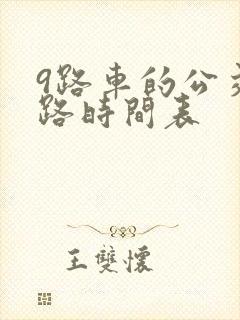 9路車的公交
路時間表
王雙懷